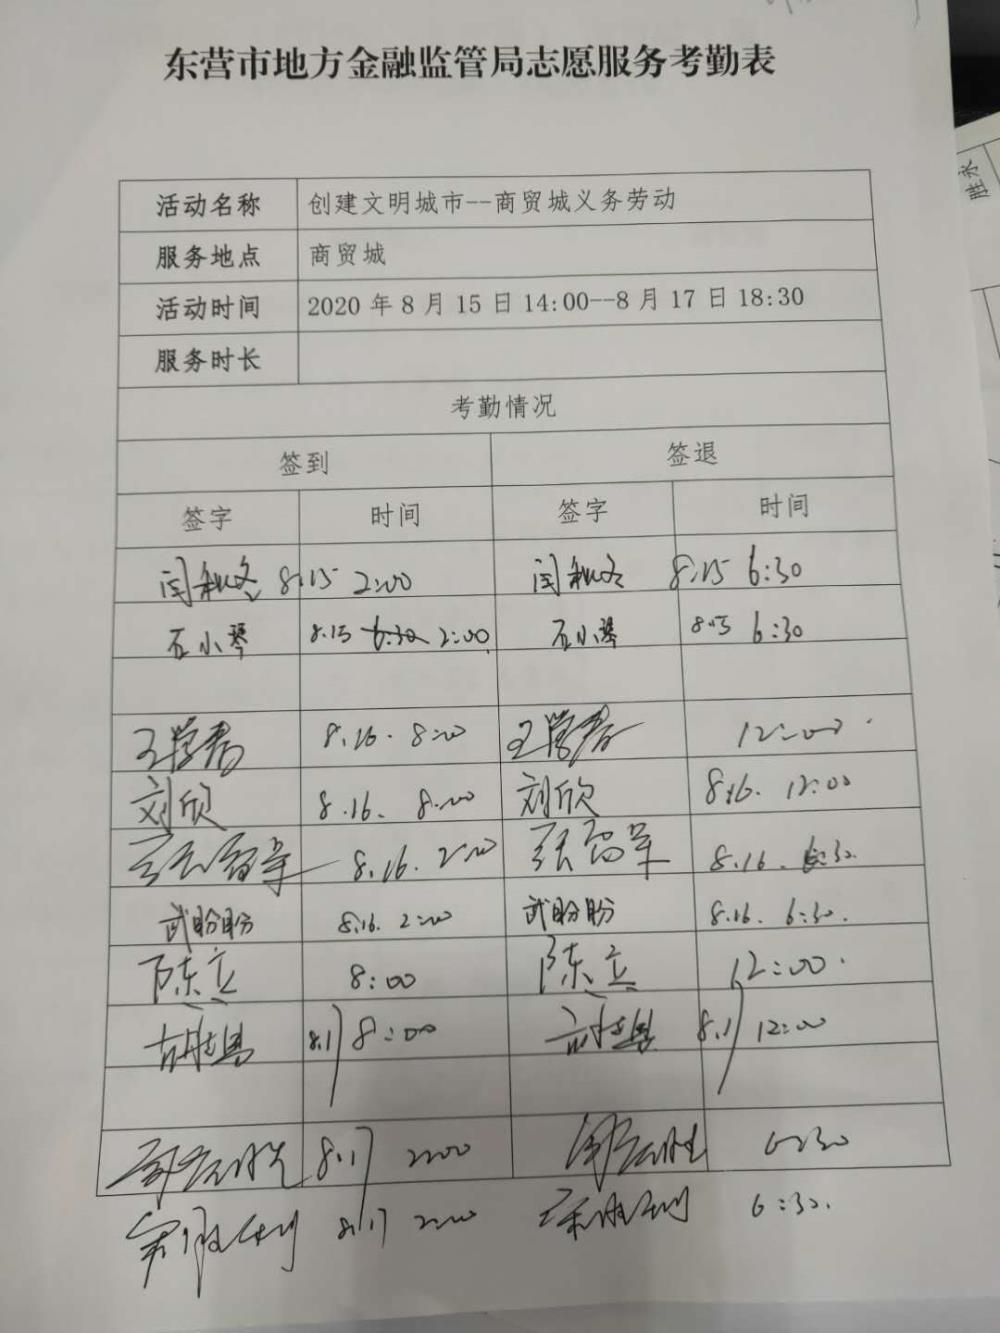 东营市地方金融监管局志愿服务考勤表
活动名称 创建文明城市--商贸城义务劳动
服务地点 商贸城
活动时间 2020 年 8 月 15 日 14:00--8 月 17 日 18:30
服务时长
考勤情况
签到 签退
签字 时间 签字 时间
闫秋冬 8.15 2:00 闫秋冬 8.15 6:30
石小琴 8.15 6:30 2:00 石小琴 8.15 6:30
王学春 8.16. 8:00 王学春 12:00
刘欣 8.16. 8:00 刘欣 8.16. 12:00
8.16. 2:00 8.16. 6:30.
武盼盼 8.16. 2:00 武盼盼 8.16. 6:30.
陈立 8:00 陈立 12:00
8.17 8:00 8.17 12:00
8.17 2:00 6:30
8.17 2:00 6:30.
胜东